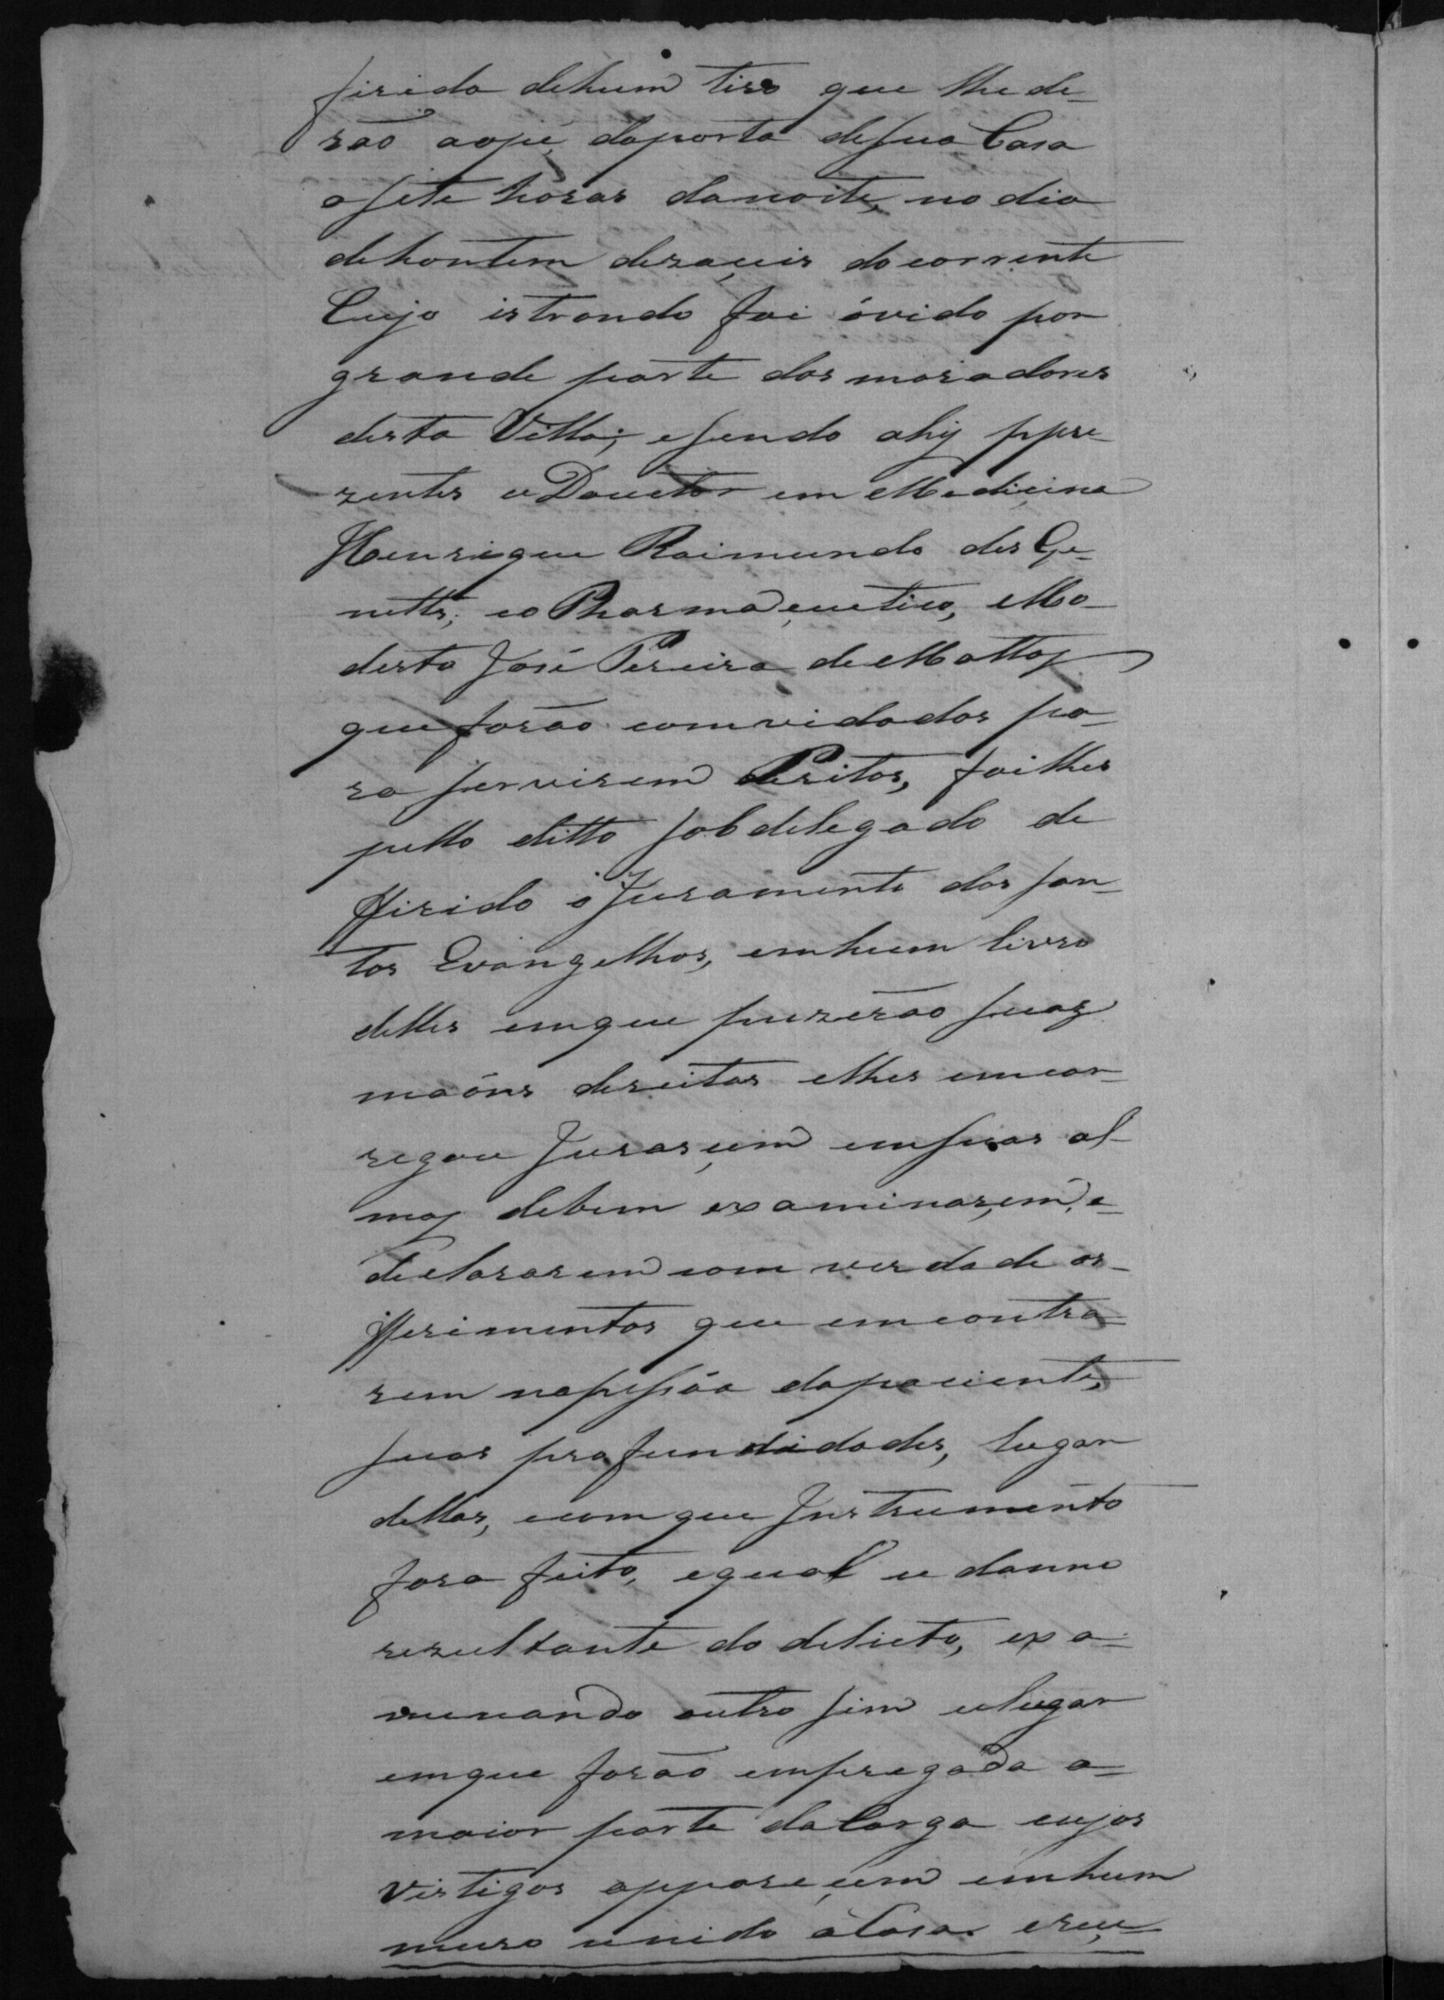 firido dehum tiro que lhe de-
rão aopé daporta desua Casa
as sete horas danoite, no dia
dehontem dezaçeis docorrente
Cujo istrondo foi óvido por
grande parte dos moradores
desta Villa; esendo ahy ppre-
zentes o Douctor em Medicina
Henrique Raimundo des Ge-
nettes, eo Pharmaçeutico, Mo-
desto José Pereira de Mattos
que forão comvidados pa-
ra servirem Peritos, foilhes
pello ditto sobdelegado de
ffirido o Juramento dos san-
tos Evangelhos, emhum livro
delles emque puzerão suas
maõns dereitas elhes emcar-
regou Jurarem emsuas al-
mas debem examinarem, e-
declararem com verdade os-
fferimentos que emcontra-
rem napessôa dopaciente,
suas profundidades, lugar
dellas, ecomque Instrumento
fora feito, equal o danno
rezultante do delicto, exa-
menando outro sim olugar
emque forão empregada a-
maior parte daCarga cujos
Vestigos appareçem emhum
muro unido áCasa. ereçe-